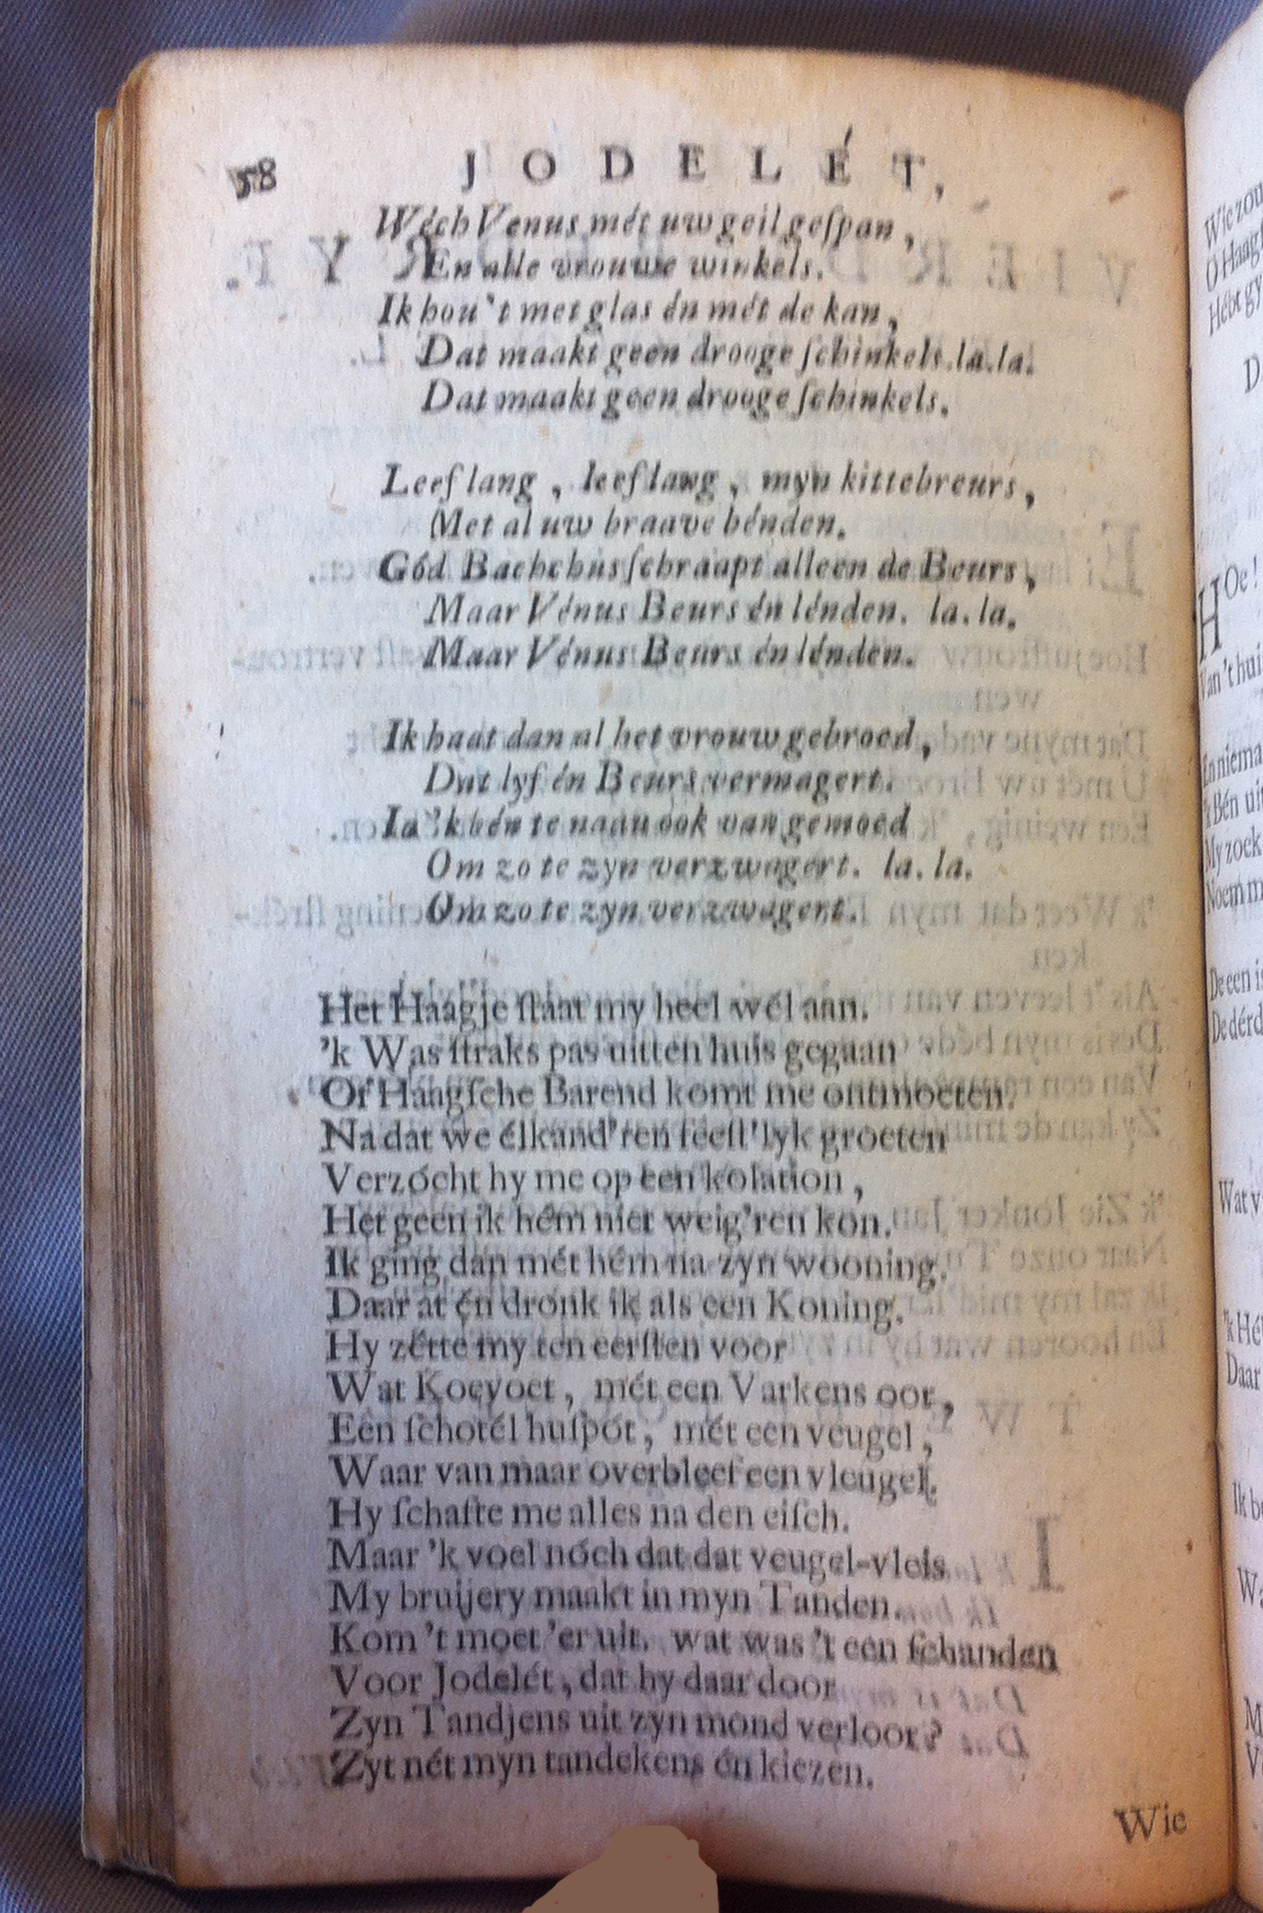 58 JODELÉT,
Wéch Venus mét uw geil geſpan,
En alle vrouwe winkels.
Ik hou 't met glas én mét de kan,
Dat maakt geen drooge ſchinkels. la. la.
Dat maakt geen drooge ſchinkels.
Leef lang, leef lang, myn kittebreurs,
Met al uw braave bénden.
Gód Bachchus ſchraapt alleen de Beurs,
Maar Vénus Beurs én lénden. la. la.
Maar Vénus Beurs én lénden.
Ik haat dan al het vrouw gebroed,
Dat lyf én Beurs vermagert.
Ia 'k bén te naau ook van gemoed
Om zo te zyn verzwagert. la. la.
Om zo te zyn verzwagert.
Het Haagje ſtaat my heel wél aan.
'k Was ſtraks pas uitten huis gegaan
Of Haagſche Barend komt me ontmoeten.
Na dat we élkand'ren feeſt'lyk groeten
Verzócht hy me op een kolation,
Het geen ik hém niet weig'ren kon.
Ik ging dan mét hém na zyn wooning.
Daar at én dronk ik als een Koning.
Hy zétte my ten eerſten voor
Wat Koeyoet, mét een Varkens oor,
Een ſchotél huſpót, mét een veugel,
Waar van maar overbleef een vleugel.
Hy ſchafte me alles na den eiſch.
Maar 'k voel nóch dat dat veugel-vleis
My bruijery maakt in myn Tanden.
Kom 't moet 'er uit. wat was 't een ſchanden
Voor Jodelét, dat hy daar door
Zyn Tandjens uit zyn mond verloor?
Zyt nét myn tandekens én kiezen.
Wie
Wie zou
O Haagſ
Hébt gy
HOe!
Van 't hui
En niema
'k Bén uit
My zoek
Noem m
De een is
De dérd
Wat v
'k Hé
Daar
Ik be